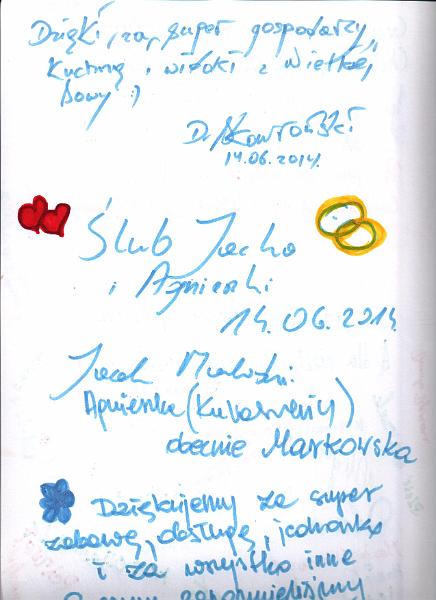 Dzięki, za, super gospodarzy,
Kuchnię i widoki z Wielkiej
Sowy :)
14.06.2014.
Ślub Jacka
i Agnieszki
14.06.2014
Jacek
Agnieszka
obecnie Markowska
Dziękujemy za super
zabawę, obsługę, jedzonko
i za wszystko inne
o czym zapomnieliśmy